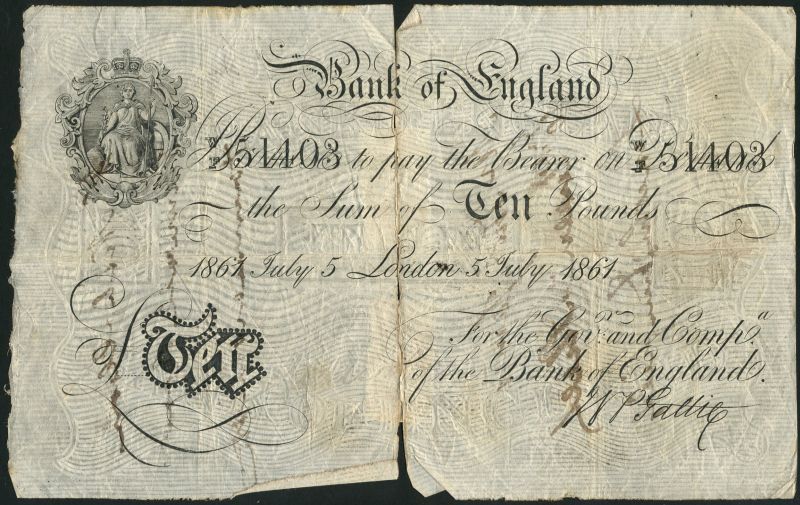 Bank of England
W/B 51403 to pay the Bearer on W/B 51403
the Sum of Ten Pounds
1861 July 5 London 5 July 1861
For the Govr. and Compa.
Ten
of the Bank of England.
W P Gattie